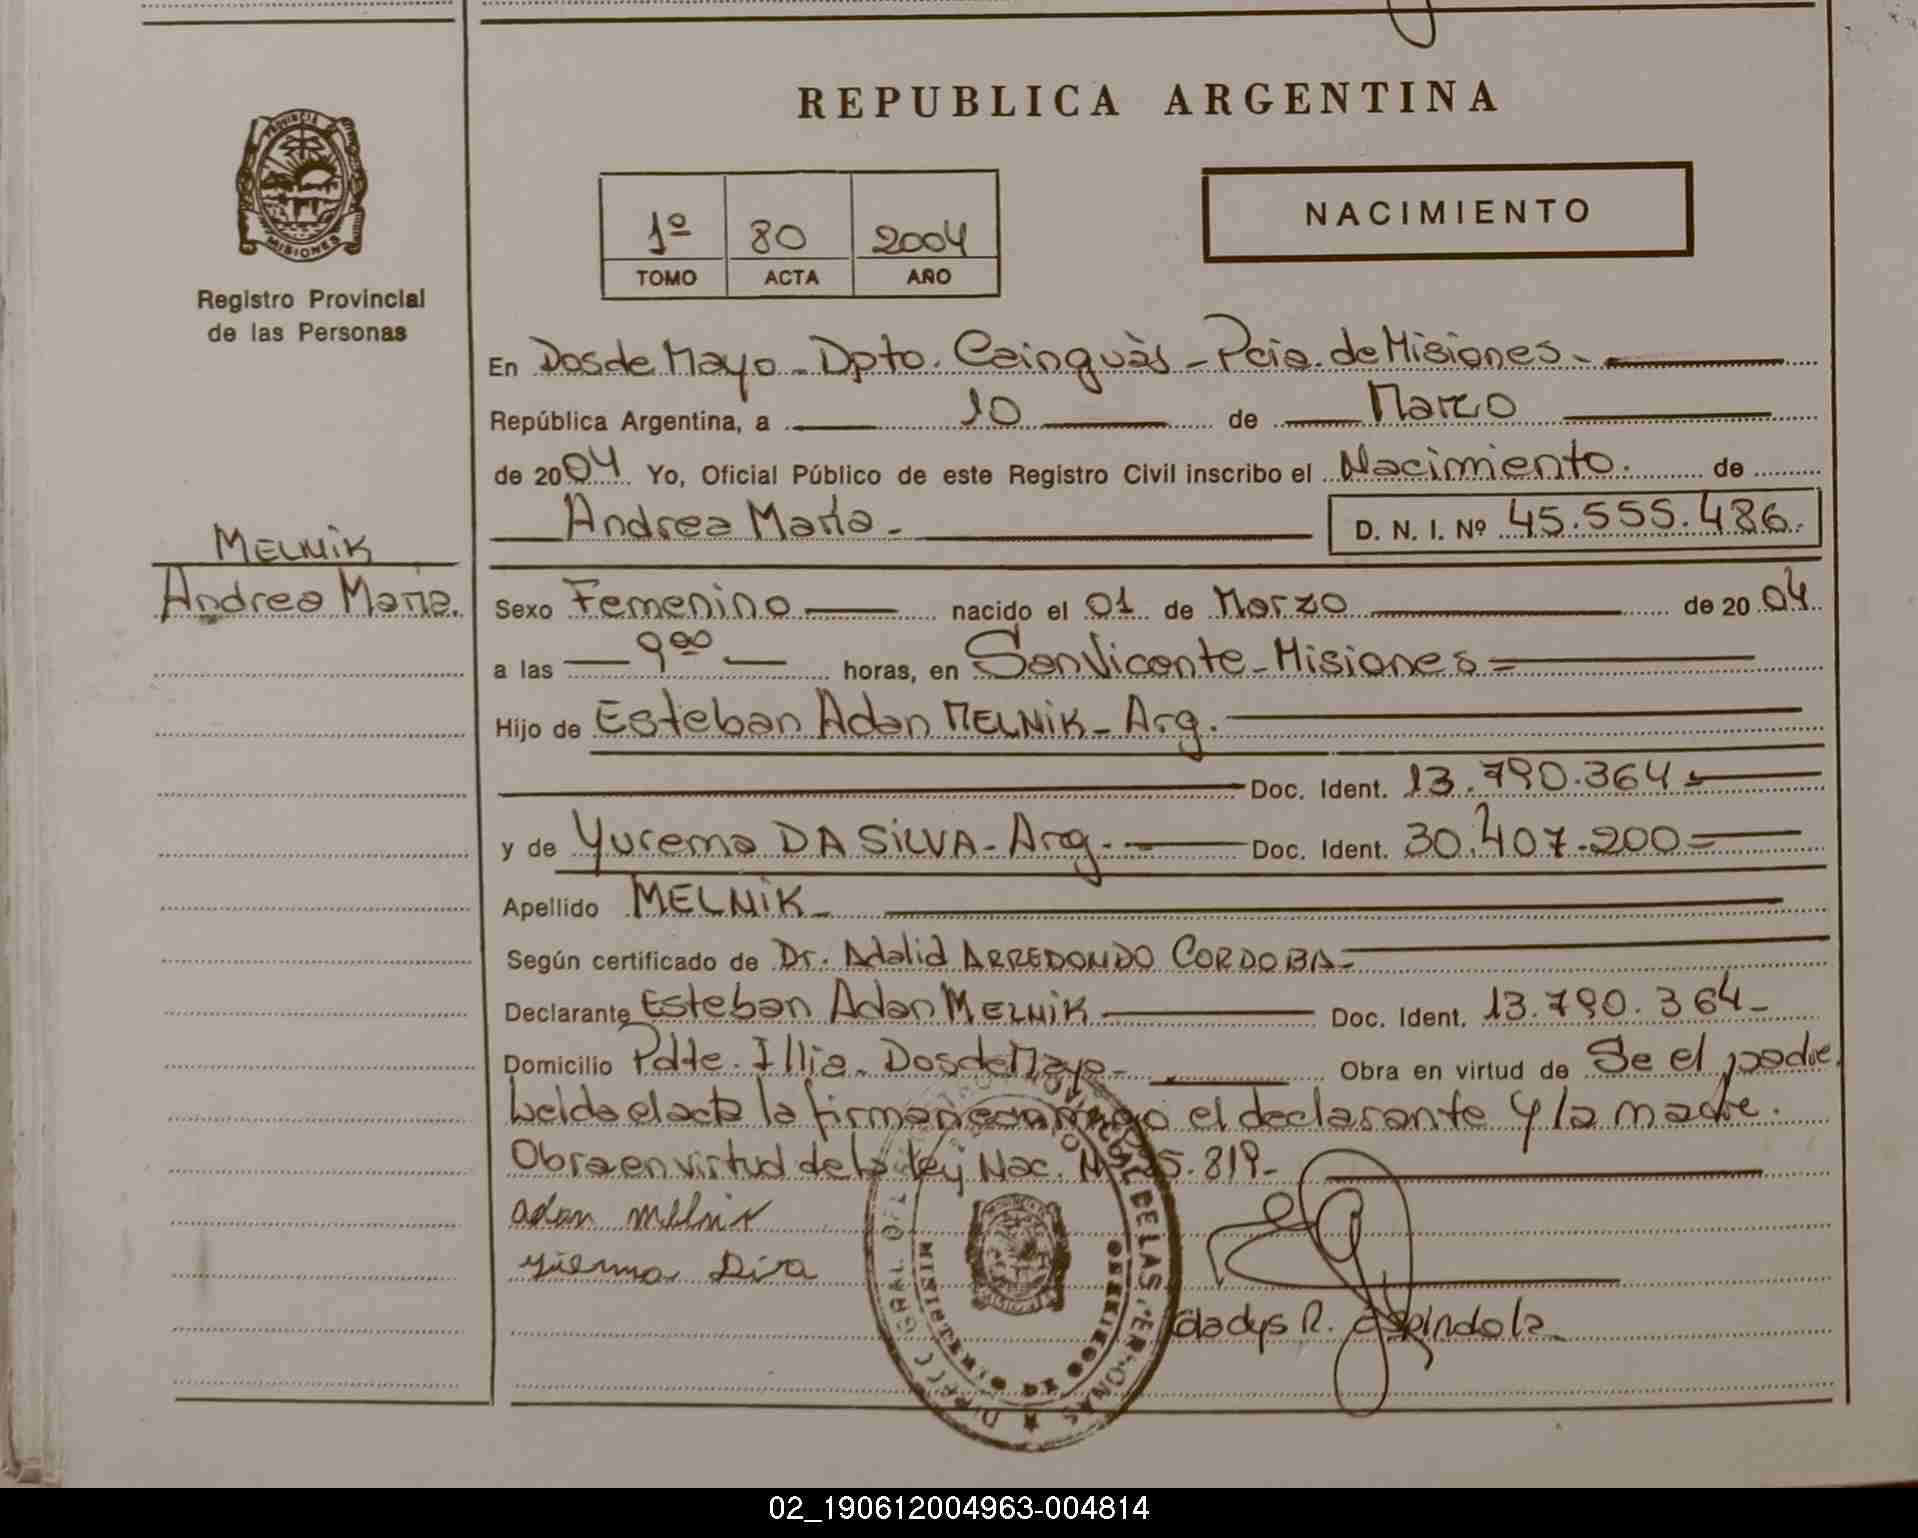 REPUBLICA ARGENTINA
PROVINCIA DE
MISIONES
Registro Provincial
de las Personas
1º 80 2004
TOMO ACTA AÑO
NACIMIENTO
En Dos de Mayo - Dpto. Cainguàs - Pcia. de Misiones -
República Argentina, a 10 de Marzo
de 2004 Yo, Oficial Público de este Registro Civil inscribo el Nacimiento. de
Andrea María - D. N. I. Nº 45.555.486.
MELNIK
Andrea Maria.
Sexo Femenino nacido el 01 de Marzo de 2004.
a las 9 00 horas, en San Vicente - Misiones =
Hijo de Esteban Adan MELNIK - Arg.
Doc. Ident. 13.790.364
y de Yurema DA SILVA - Arg. - Doc. Ident. 30.407.200 =
Apellido MELNIK -
Según certificado de Dr. Adalid ARREDONDO CORDOBA -
Declarante Esteban Adan MELNIK Doc. Ident. 13.790.364 -
Domicilio Pdte. Illia - Dos de Mayo - Obra en virtud de Se el padre.
Leida el acta la firman conmigo el declarante y la madre.
Obra en virtud de la ley Nac. Nº 25.819 -
adan melnik
Gladys R. Espindola
02_190612004963-004814